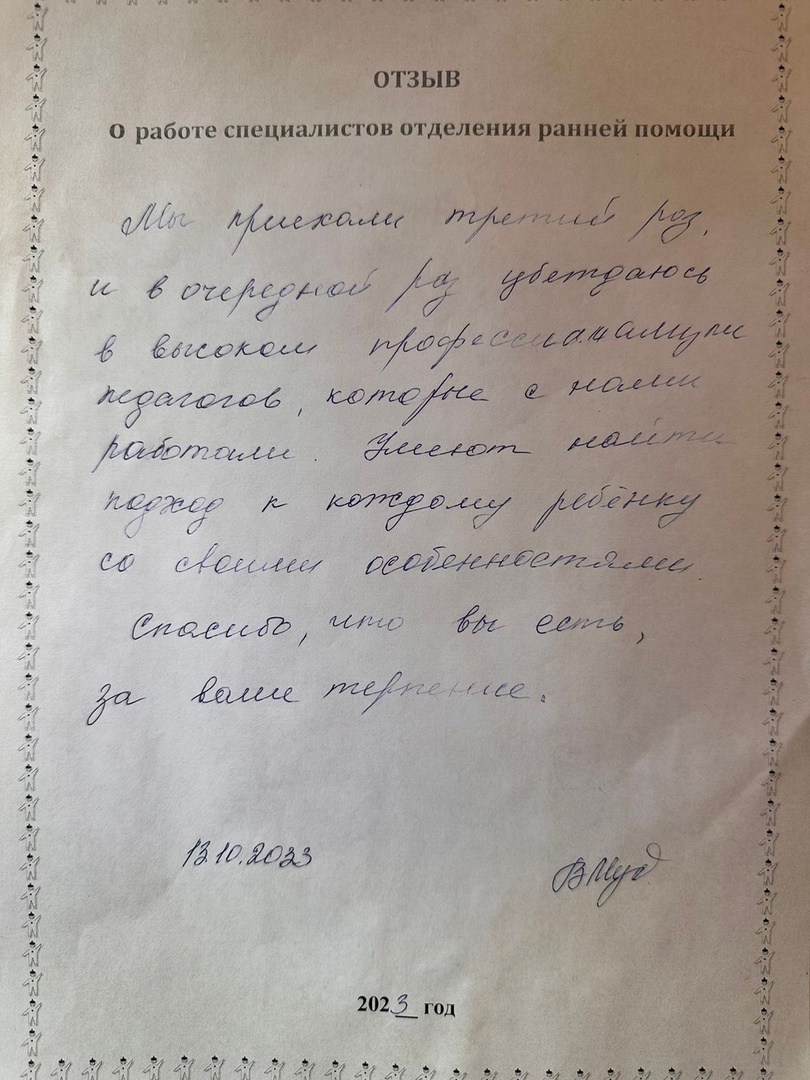 ОТЗЫВ
О работе специалистов отделения ранней помощи
Мы приехали третий раз,
и в очередной раз убеждаюсь
в высоком профессионализме
педагогов, которые с нами
работали. Умеют найти
подход к каждому ребёнку
со своими особенностями.
Спасибо, что вы есть,
за ваше терпение.
13.10.2023
2023 год